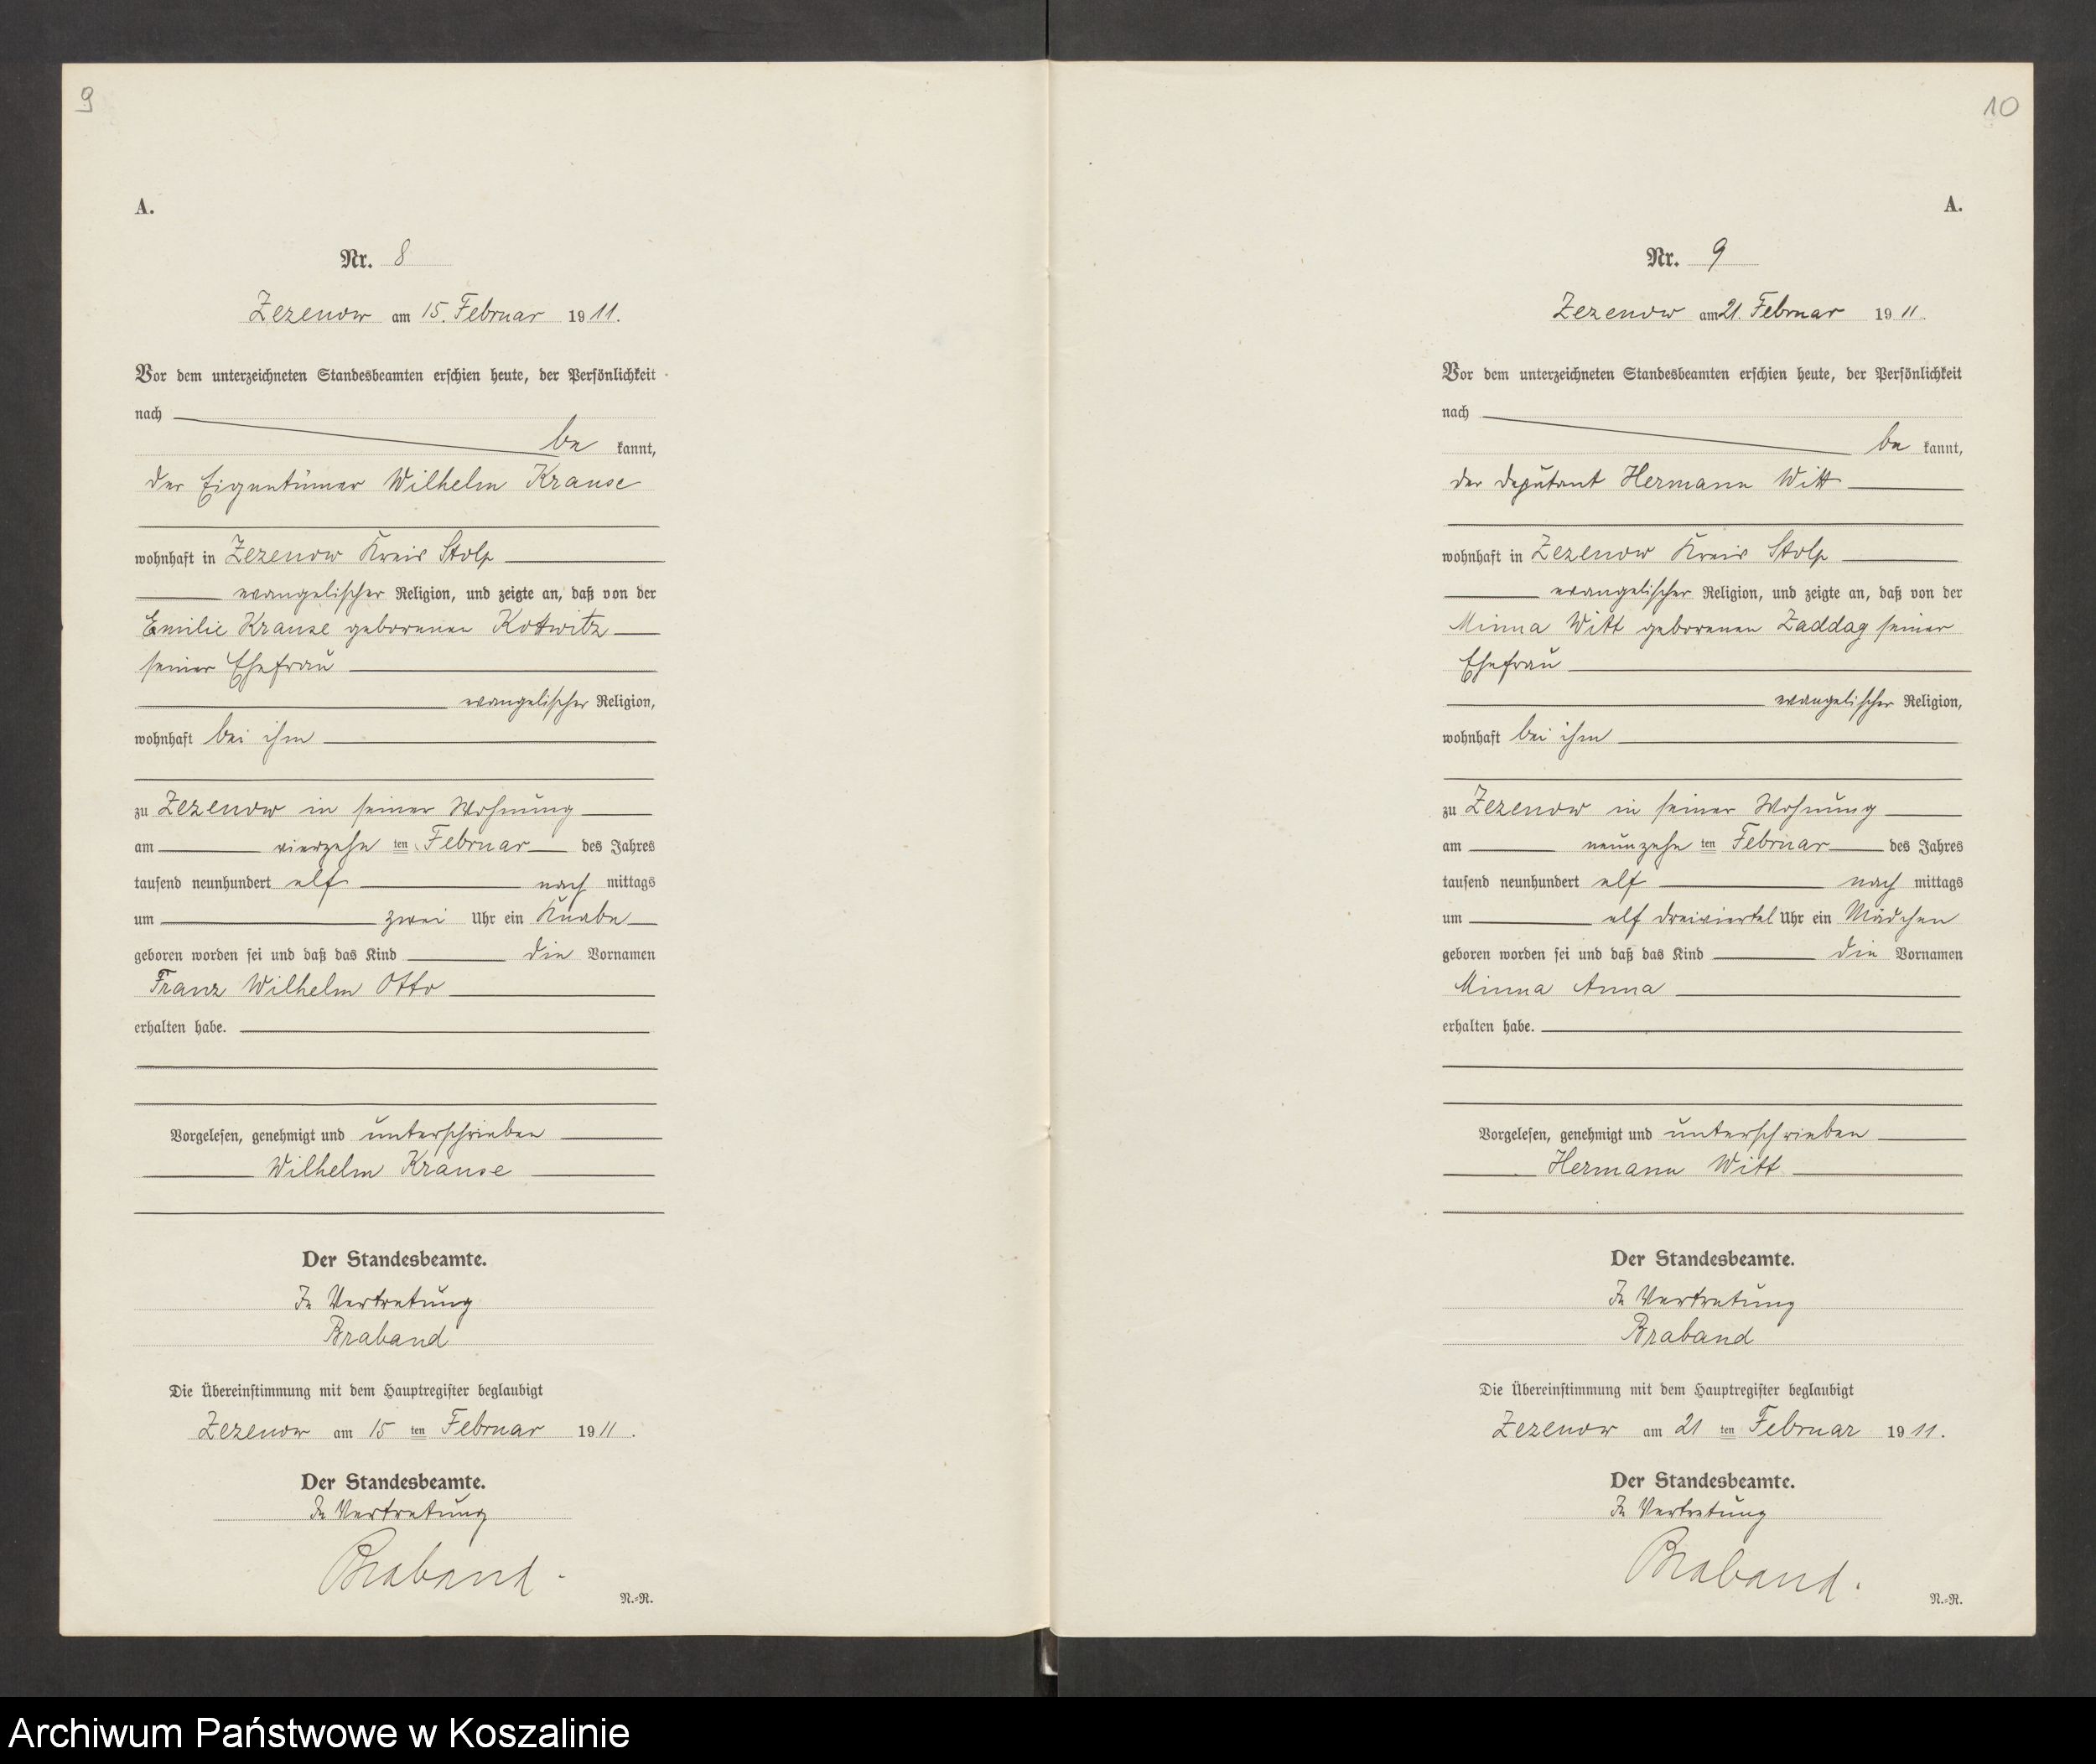 9
A.
Nr. 8
Zezenow am 15. Februar 1911.
Vor dem unterzeichneten Standesbeamten erschien heute, der Persönlichkeit
nach
be kannt,
der Eigentümer Wilhelm Krause
wohnhaft in Zezenow Kreis Stolp
evangelischer Religion, und zeigte an, daß von der
Emilie Krause geborenen Kottwitz
seiner Ehefrau
evangelischer Religion,
wohnhaft bei ihm
zu Zezenow in seiner Wohnung
am vierzehn ten Februar des Jahres
tausend neunhundert elf nach mittags
um zwei Uhr ein Knabe
geboren worden sei und daß das Kind die Vornamen
Franz Wilhelm Otto
erhalten habe.
Vorgelesen, genehmigt und unterschrieben
Wilhelm Krause
Der Standesbeamte.
In Vertretung
Braband
Die Übereinstimmung mit dem Hauptregister beglaubigt
Zezenow am 15 ten Februar 1911.
Der Standesbeamte.
In Vertretung
Braband.
N.-R.
10
A.
Nr. 9
Zezenow am 21. Februar 1911.
Vor dem unterzeichneten Standesbeamten erschien heute, der Persönlichkeit
nach
be kannt,
der Deputant Hermann Witt
wohnhaft in Zezenow Kreis Stolp
evangelischer Religion, und zeigte an, daß von der
Minna Witt geborenen Zaddag seiner
Ehefrau
evangelischer Religion,
wohnhaft bei ihm
zu Zezenow in seiner Wohnung
am neunzehn ten Februar des Jahres
tausend neunhundert elf nach mittags
um elf dreiviertel Uhr ein Mädchen
geboren worden sei und daß das Kind die Vornamen
Minna Anna
erhalten habe.
Vorgelesen, genehmigt und unterschrieben
Hermann Witt
Der Standesbeamte.
In Vertretung
Braband
Die Übereinstimmung mit dem Hauptregister beglaubigt
Zezenow am 21 ten Februar 1911.
Der Standesbeamte.
In Vertretung
Braband.
N.-R.
Archiwum Państwowe w Koszalinie